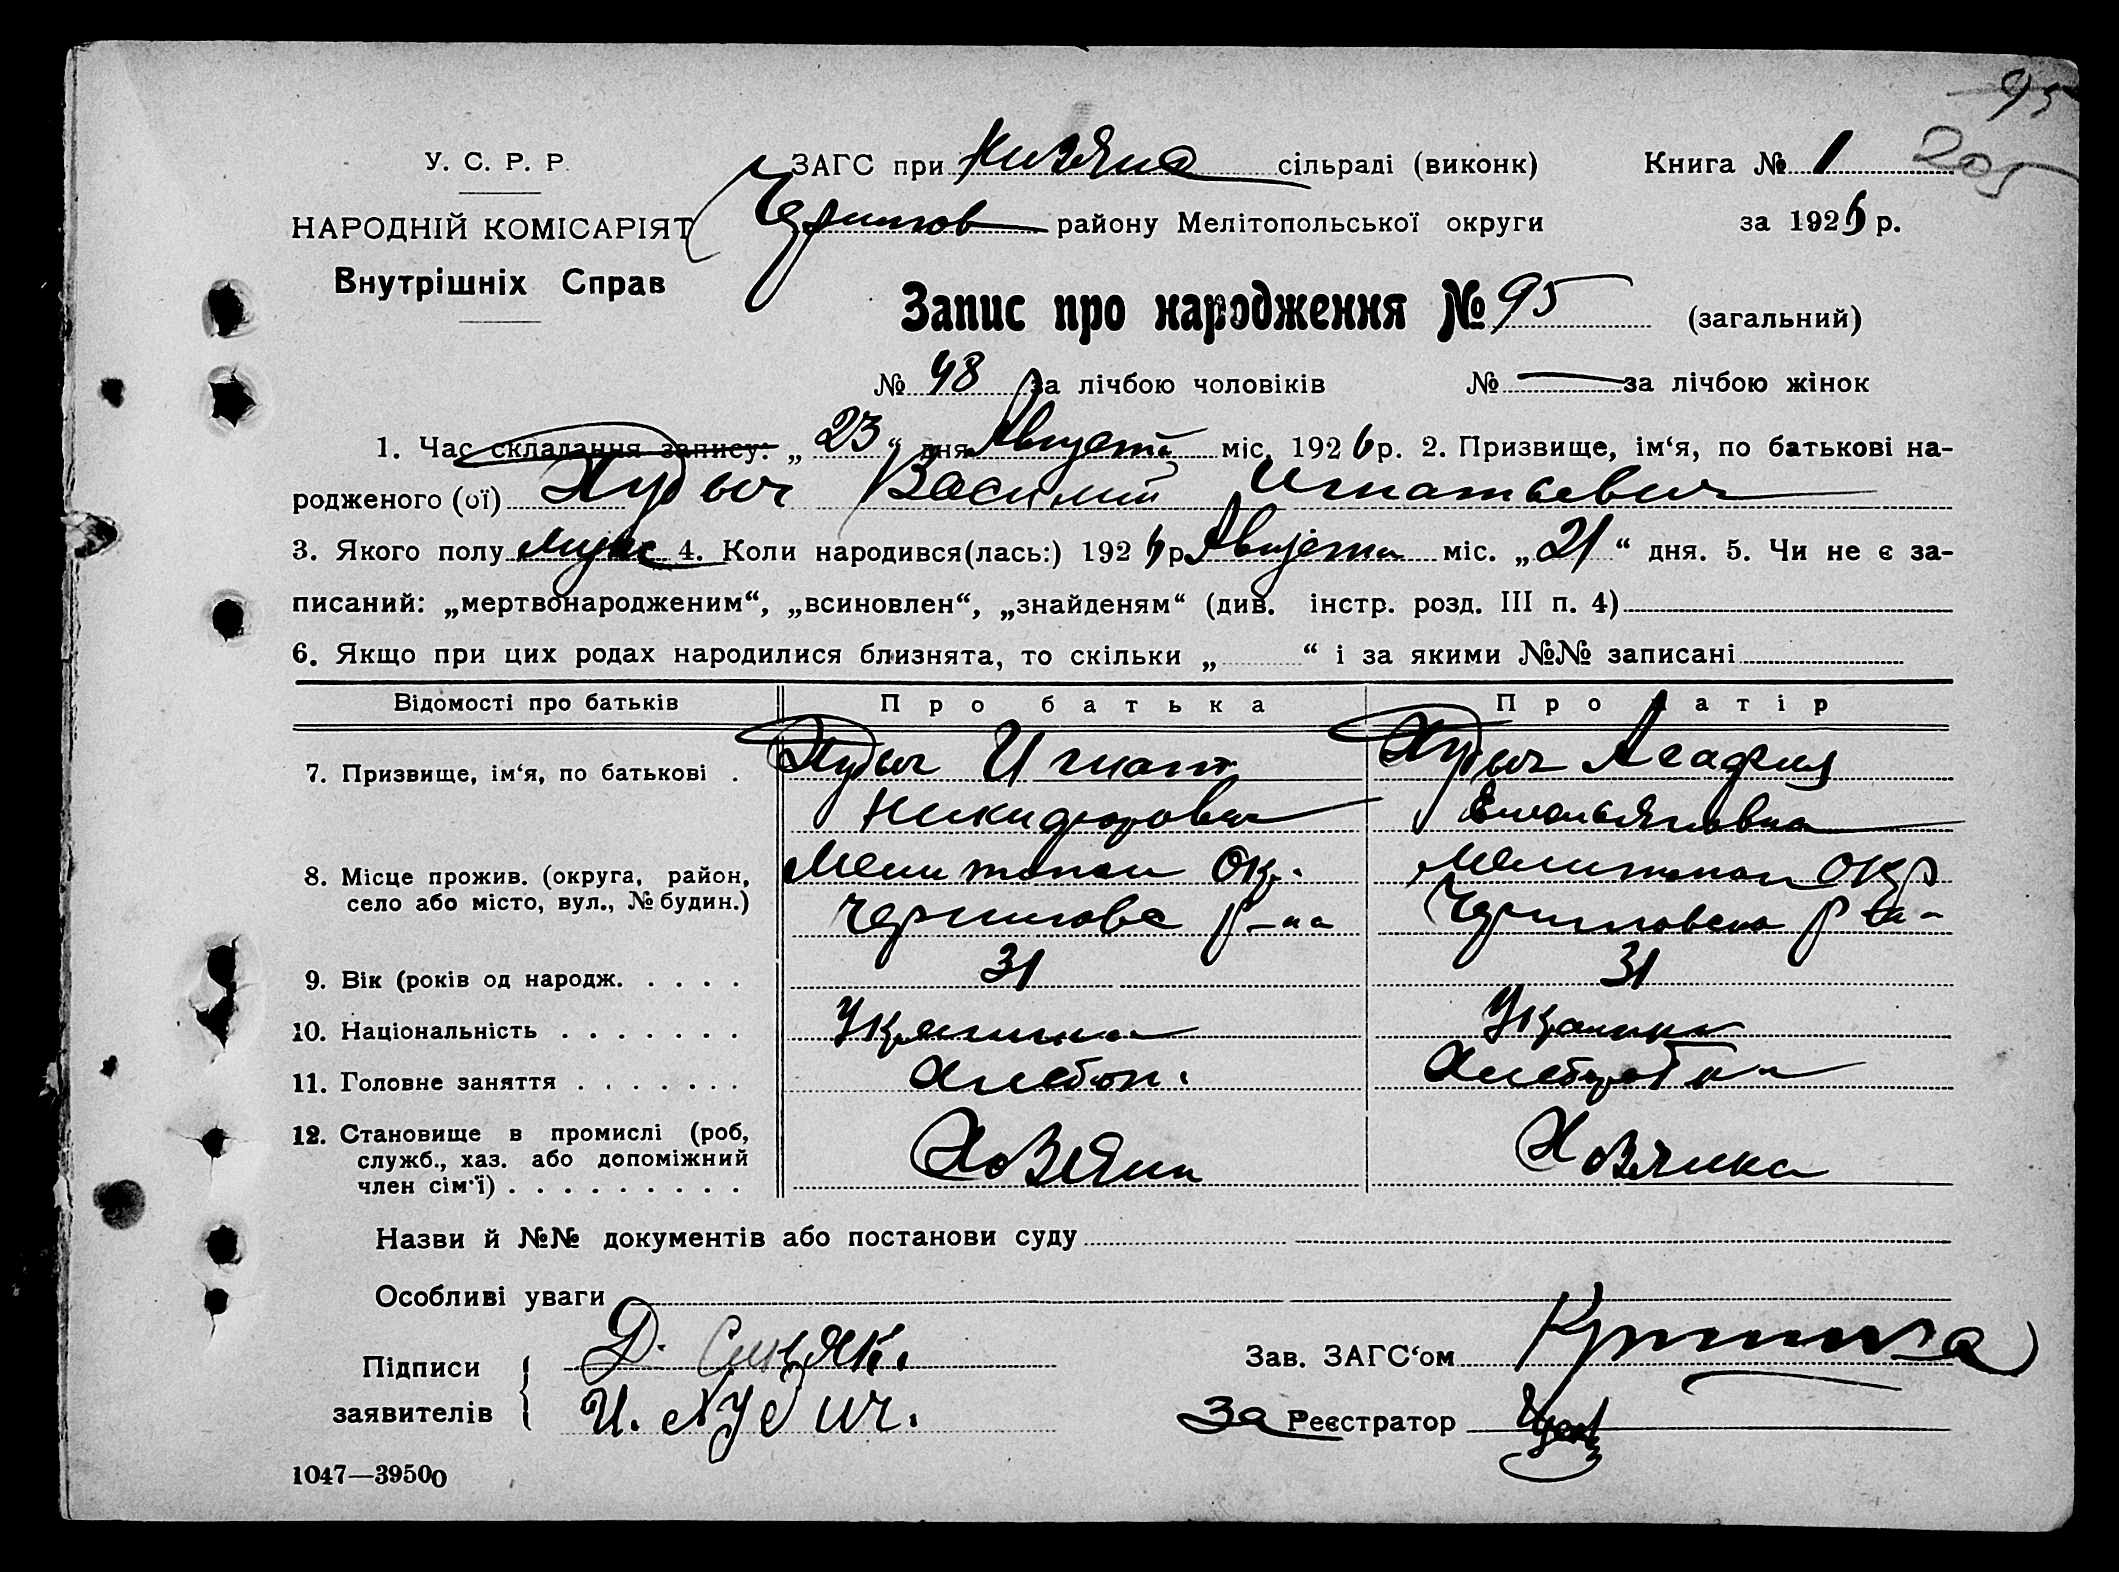 95
205
У. С. Р. Р.
НАРОДНІЙ КОМІСАРІЯТ
Внутрішніх Справ
ЗАГС при сільраді (виконк) Книга № 1
району Мелітопольської округи за 1926 р.
Запис про народження № 95 (загальний)
№ 48 за лічбою чоловіків № — за лічбою жінок
1. Час складання запису: „ 23 “ дня Августа міс. 1926 р. 2. Призвище, ім‘я, по батькові на-
родженого (ої) Хубич Василий Игнатьевич
3. Якого полу муж 4. Коли народився(лась:) 1926 р Августа міс. „ 21 “ дня. 5. Чи не є за-
писаний: „мертвонародженим“, „всиновлен“, „знайденям“ (див. інстр. розд. III п. 4)
6. Якщо при цих родах народилися близнята, то скільки „ “ і за якими №№ записані
Відомості про батьків Про батька Про матір
7. Призвище, ім‘я, по батькові . Хубич Игнат Хубич Агафия
Никифорович Емельяновна
8. Місце прожив. (округа, район, Мелитопол Окр. Мелитопол Окр
село або місто, вул., № будин.) р-на
9. Вік (років од народж. . . . . 31 31
10. Національність . . . . . . .
11. Головне заняття . . . . . . . Хлебоп.
12. Становище в промислі (роб,
служб., хаз. або допоміжний Хозяин Хозяика
член сім‘ї) . . . . . . . . .
Назви й №№ документів або постанови суду
Особливі уваги
Підписи Д.
заявителів И. Хубич.
Зав. ЗАГС‘ом
За Реєстратор
1047—39500